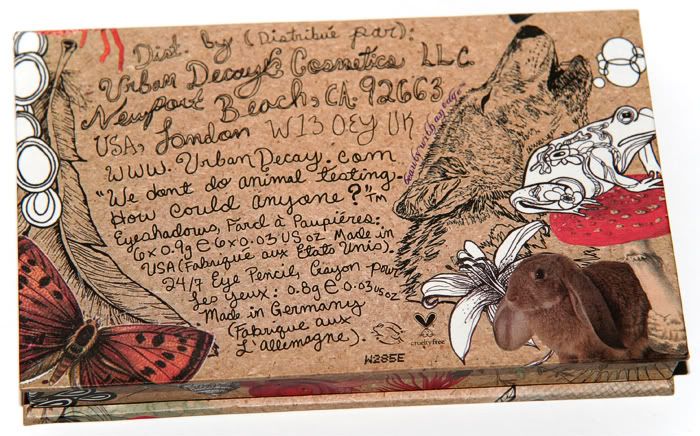 Dist. by (Distribué par):
Urban Decay® Cosmetics LLC
Newport Beach, CA 92663
USA, London W13 0EY UK
www.UrbanDecay.com
"We don't do animal testing.
How could anyone?"™
Eyeshadows, Fard à Paupières:
6x0.9g e 6x0.03 US oz Made in
USA (Fabrique aux États Unis).
24/7 Eye Pencil, Crayon pour
les yeux: 0.8g e 0.03 US OZ
Made in Germany
(Fabrique aux
L'allemagne).
crueltyfree
W285E